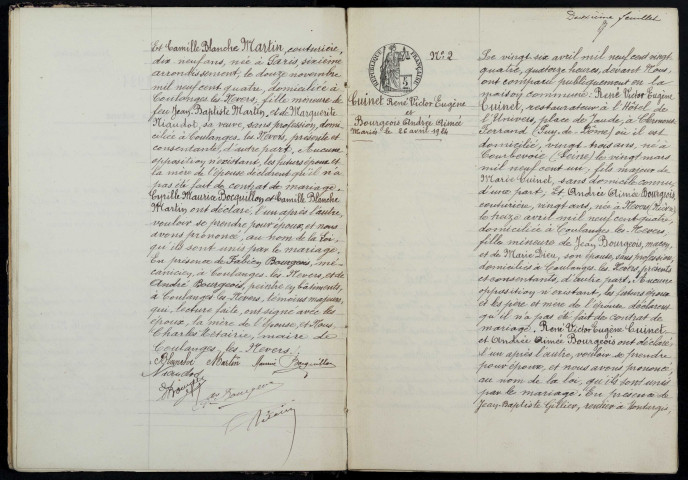 Et Camille Blanche Martin, couturière,
dix neuf ans, née à Paris sixième
arrondissement, le douze novembre
mil neuf cent quatre, domiciliée à
Coulanges les Nevers, fille mineure de
feu Jean Baptiste Martin, et de Marguerite
Niaudot, sa veuve, sans profession, domi-
ciliée à Coulanges les Nevers, présente et
consentante, d'autre part. Aucune
opposition n'existant, les futurs époux et
la mère de l'épouse déclarent qu'il n'a
pas été fait de contrat de mariage.
Cyrille Maurice Bocquillon et Camille Blanche
Martin ont déclaré, l'un après l'autre,
vouloir se prendre pour époux, et nous
avons prononcé, au nom de la Loi,
qu'ils sont unis par le mariage.
En présence de Fabien Bourgeois, mé-
canicien, à Coulanges les Nevers, et de
André Bourgeois, peintre en bâtiments,
à Coulanges les Nevers, témoins majeurs,
qui, lecture faite, ont signé avec les
époux, la mère de l'épouse, et Nous,
Charles Cétairie, maire de
Coulanges les Nevers.
Blanche Martin Bocquillon
Niaudot
Bourgeois
Deuxième feuillet
RÉPUBLIQUE FRANÇAISE
N° 2
Cuinet René Victor Eugène
et
Bourgeois Andrée Aimée
Mariés le 26 avril 1924
Le vingt six avril mil neuf cent vingt
quatre, quatorze heures, devant Nous,
ont comparu publiquement en la
maison commune: René Victor Eugène
Cuinet, restaurateur à l'Hôtel de
l'Univers, place de Jaude, à Clermont
Ferrand (Puy-de-Dôme) où il est
domicilié, vingt-trois ans, né à
Courbevoie (Seine) le vingt mars
mil neuf cent un, fils majeur de
Marie Cuinet, sans domicile connu,
d'une part, Et Andrée Aimée Bourgeois,
couturière, vingt ans, née à Nevers, Nièvre,
le treize avril mil neuf cent quatre,
domiciliée à Coulanges les Nevers,
fille mineure de Jean Bourgeois, maçon,
et de Marie Dieu, son épouse, sans profession,
domiciliés à Coulanges les Nevers, présents
et consentants, d'autre part. Aucune
opposition n'existant, les futurs époux
et les père et mère de l'épouse déclarent
qu'il n'a pas été fait de contrat de
mariage. René Victor Eugène Cuinet
et Andrée Aimée Bourgeois ont déclaré,
l'un après l'autre, vouloir se prendre
pour époux, et nous avons prononcé,
au nom de la loi, qu'ils sont unis
par le mariage. En présence de
Jean-Baptiste Gillier, rentier à Montargis,